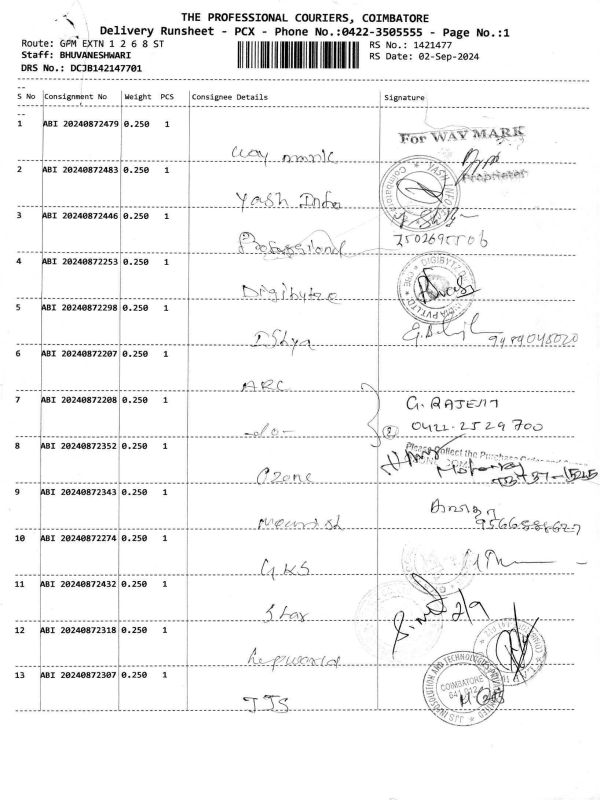 THE PROFESSIONAL COURIERS, COIMBATORE
Delivery Runsheet - PCX - Phone No.:0422-3505555 - Page No.:1
Route: GPM EXTN 1 2 6 8 ST
RS No.: 1421477
Staff: BHUVANESHWARI
RS Date: 02-Sep-2024
DRS No.: DCJB142147701
S No Consignment No Weight PCS Consignee Details Signature
1 ABI 20240872479 0.250 1
For WAY MARK
way mark
Proprietor
2 ABI 20240872483 0.250 1
YASH INFO
Yash Info
3 ABI 20240872446 0.250 1
Professional
7502695506
4 ABI 20240872253 0.250 1
DIGIBYTZ
Digibytze
5 ABI 20240872298 0.250 1
DShya
9489048020
6 ABI 20240872207 0.250 1
ARC
7 ABI 20240872208 0.250 1
G. RAJESH
-do-
2
0422-2529700
8 ABI 20240872352 0.250 1
Please collect the Purchase Order
Ozone
9 ABI 20240872343 0.250 1
9566588627
10 ABI 20240872274 0.250 1
GKS
11 ABI 20240872432 0.250 1
Star
2/9
12 ABI 20240872318 0.250 1
13 ABI 20240872307 0.250 1
JJS INFOSOLUTION AND TECHNOLOGIES PRIVATE LIMITED
COIMBATORE
641 012
JJS